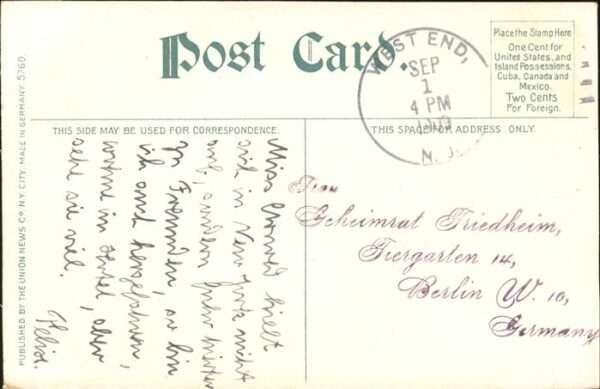 Post Card.
WEST END,
SEP
1
4 PM
N. J.
Place the Stamp Here
One Cent for
United States, and
Island Possessions,
Cuba, Canada and
Mexico.
Two Cents
For Foreign.
THIS SIDE MAY BE USED FOR CORRESPONDENCE.
THIS SPACE FOR ADDRESS ONLY.
Miss hielt
sich in New York nicht
auf, sondern fuhr weiter
zu Freunden, so bin
ich auch hergefahren,
wohne im Hotel, aber
sehe sie viel.
Felix.
Frau
Geheimrat Friedheim,
Tiergarten 14,
Berlin W. 10,
Germany
PUBLISHED BY THE UNION NEWS CO. N.Y. CITY. MADE IN GERMANY 5760.